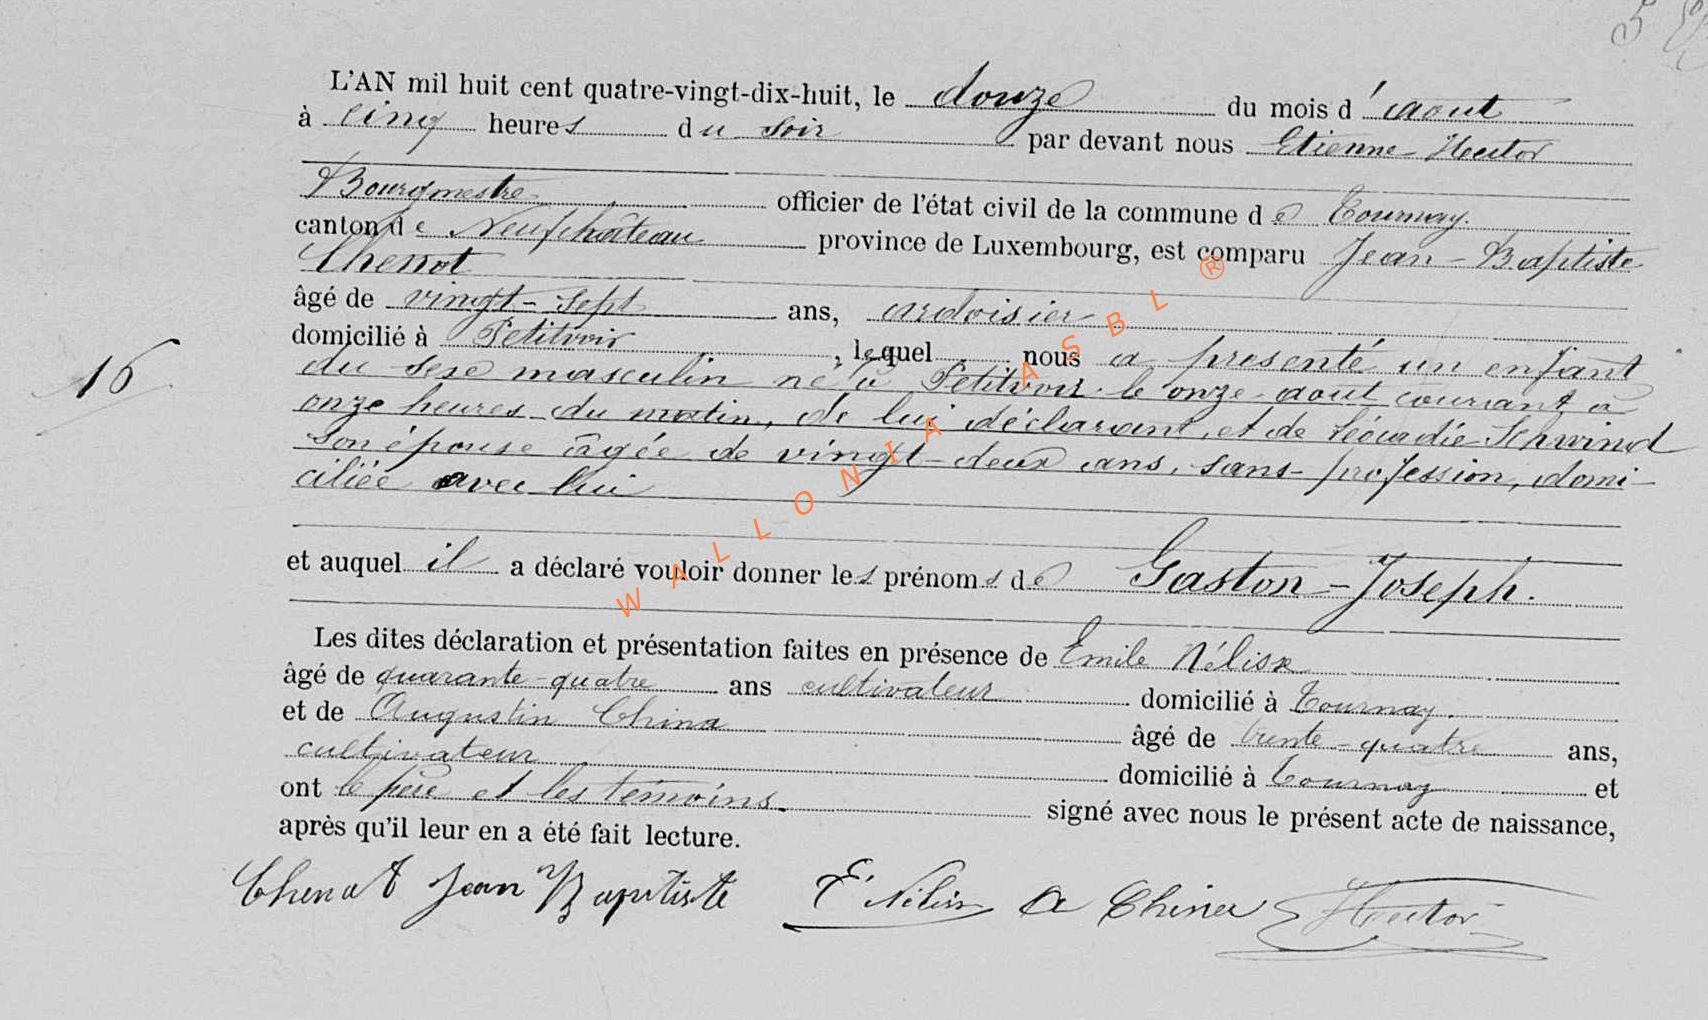 L'AN mil huit cent quatre-vingt-dix-huit, le douze du mois d'aout
à cinq heures du soir par devant nous Etienne Hector
Bourgmestre officier de l'état civil de la commune de Tournay.
canton de Neufchâteau province de Luxembourg, est comparu Jean-Baptiste
Chenot
âgé de vingt-sept ans, ardoisier
domicilié à Petitvoir, lequel nous a presenté un enfant
du sexe masculin né à Petitvoir le onze aout courant à
onze heures du matin, de lui déclarant, et de Léocadie Schwind
son épouse âgée de vingt-deux ans, sans profession, domi-
ciliée avec lui
16
et auquel il a déclaré vouloir donner les prénoms de Gaston-Joseph.
Les dites déclaration et présentation faites en présence de Emile Nélisse
âgé de quarante-quatre ans cultivateur domicilié à Tournay.
et de Augustin China âgé de trente-quatre ans,
cultivateur domicilié à Tournay et
ont le père et les témoins signé avec nous le présent acte de naissance,
après qu'il leur en a été fait lecture.
Chenot Jean Baptiste E. Nélis A China Hector
WALLONIA ASBL ®